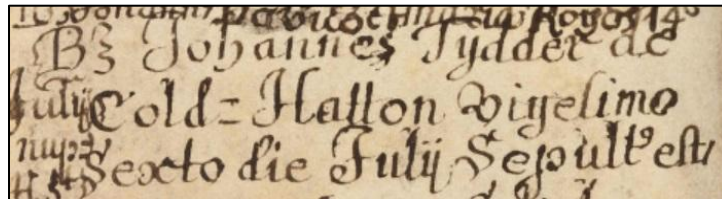 Bʒ Johannes Tydder de
Julij Cold= Hatton vigesimo
nupt Sexto die Julij Sepultꝰ est